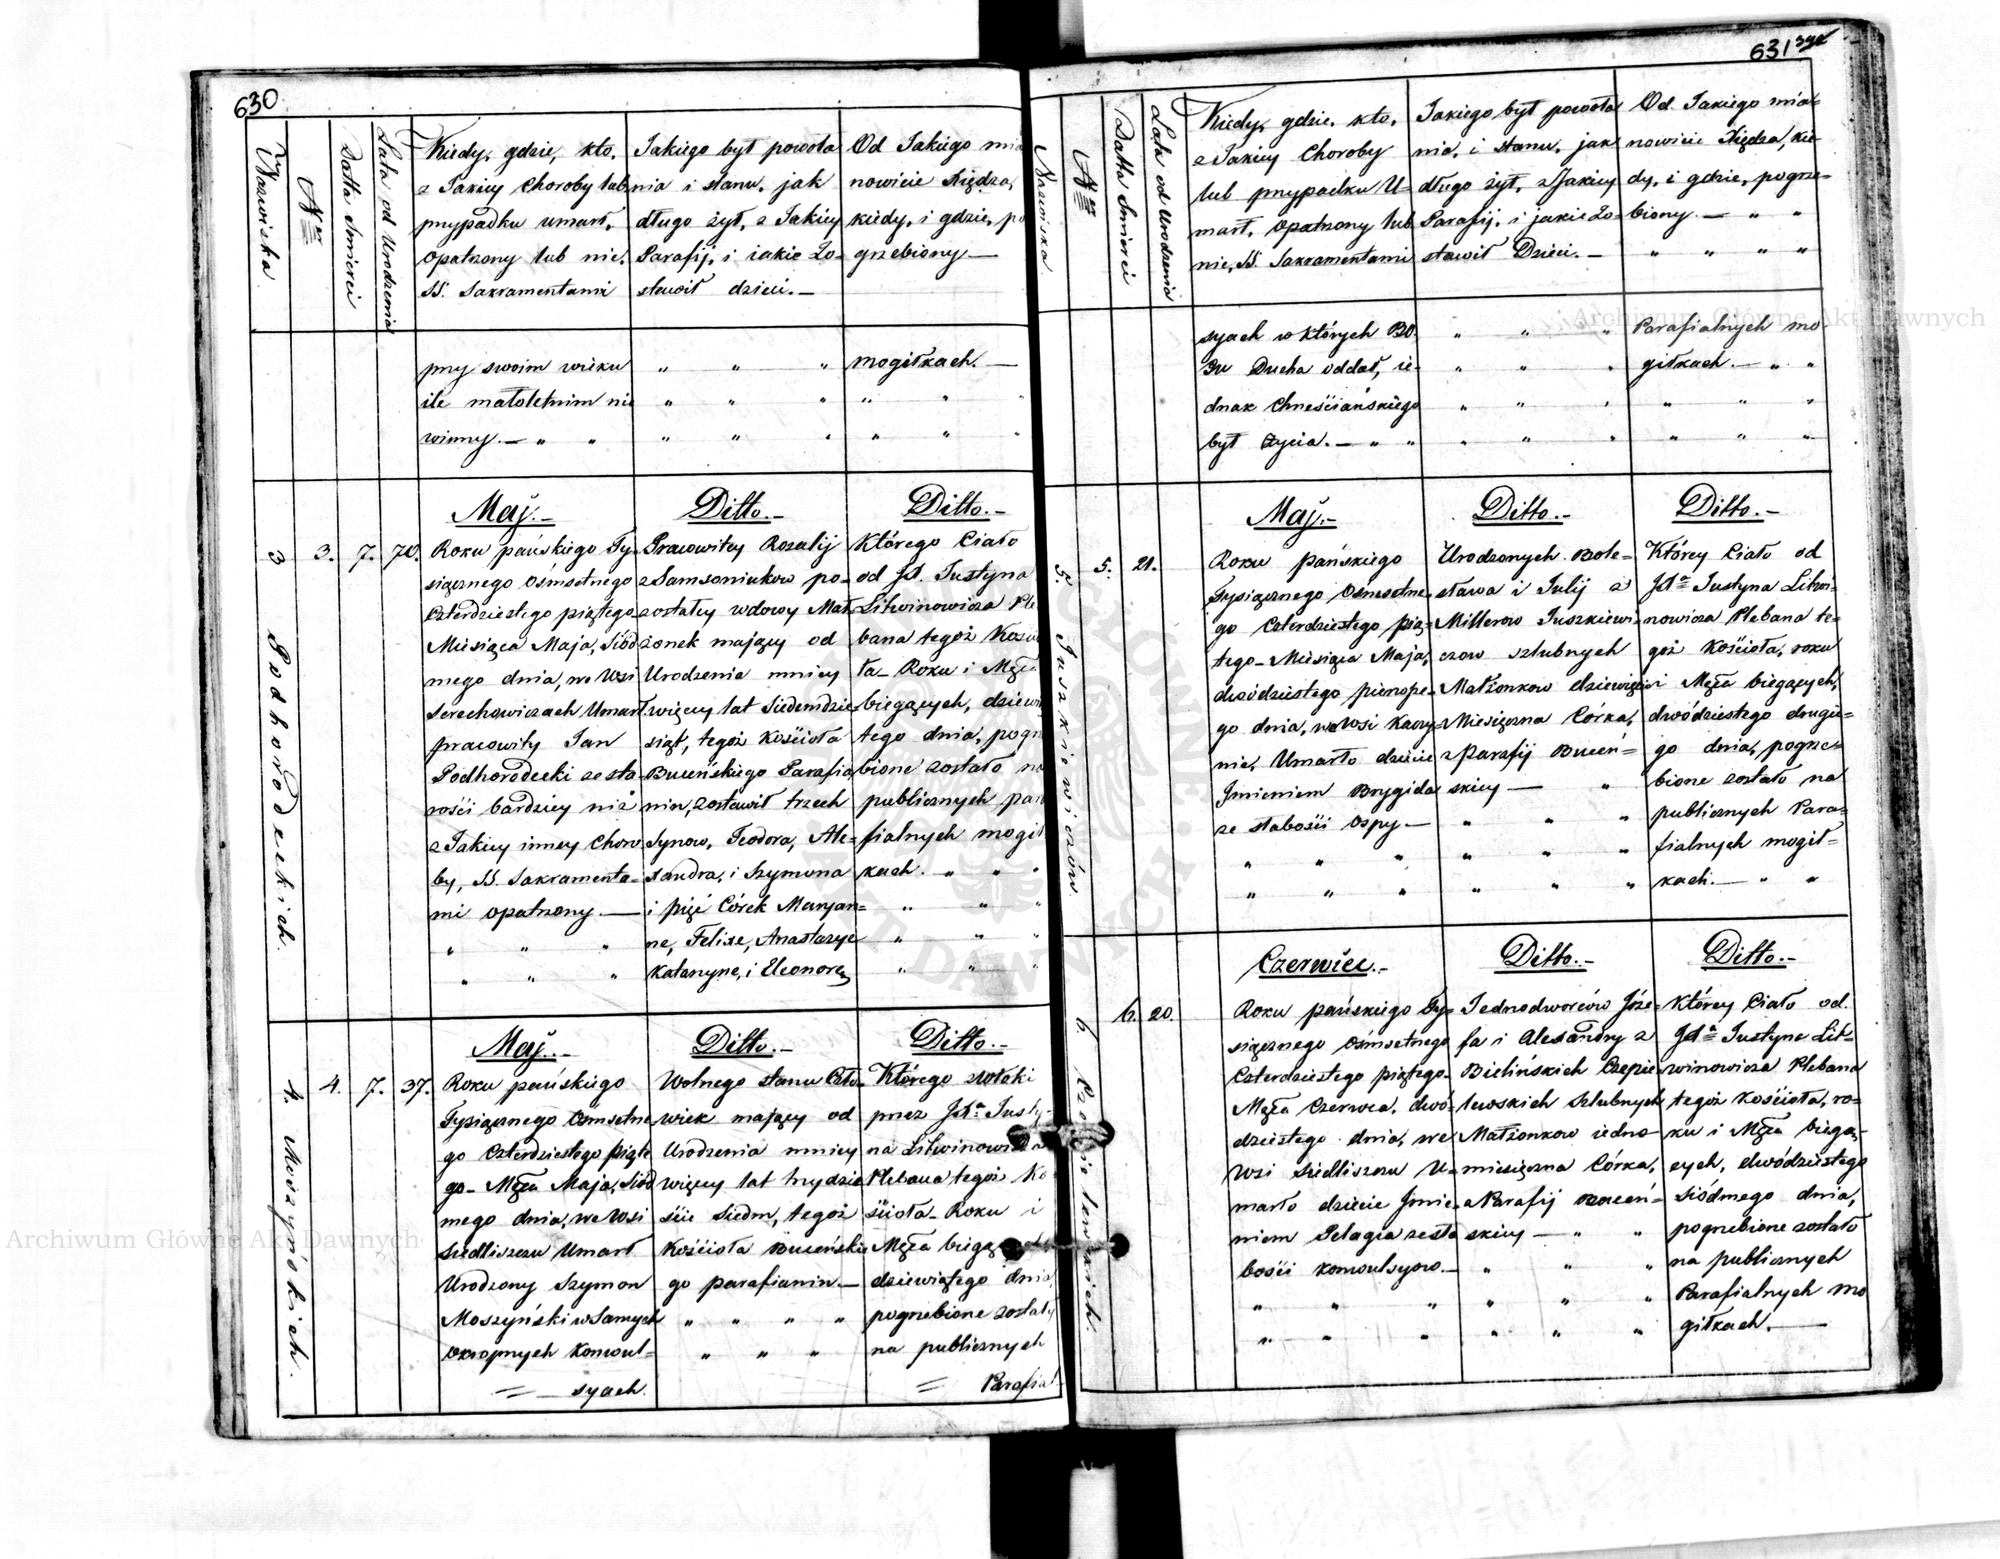 630
Nazwiska
N<sup>er</sup>
Datta Smierci
Lata od Urodzenia
Kiedy, gdzie, kto,
z Jakiey Choroby lub
przypadku umarł,
opatrzony lub nie,
SS. Sakramentami
Jakiego był powoła
nia i stanu, jak
długo żył, z Jakiey
Parafij, i iakie Zo-
stawił dzieci.—
Od Jakiego mia
nowicie Xiędza,
kiedy, i gdzie, po
grzebiony —
przy swoim wieku
ile małoletnim nie
winny.— " "
mogiłkach.—
3
Podhorodeckich.
3.
7.
70.
Maj.—
Roku pańskiego Ty-
siącznego ośmsetnego
Czterdziestego piątego
Miesiąca Maja, Siód
mego dnia, we Wsi
Serechowiczach Umarł
pracowity Jan
Podhorodecki ze sta-
rości bardziey niż
z Jakiey inney Choro
by, SS. Sakramenta-
mi opatrzony.—
Ditto.—
Pracowitey Rozalij
z Samsoniukow po-
zostałey wdowy Mał
żonek maiący od
Urodzenia mniey
więcey lat Siedemdzie
siąt, tegoż Kościoła
Buceńskiego Parafia
nin, zostawił trzech
Synow, Teodora, Ale-
xandra, i Szymona
i pięć Córek Maryan=
nę, Felixę, Anastazyę
Katarzynę, i Eleonorę
Ditto.—
Którego Ciało
od Jx. Justyna
Litwinowicza Ple
bana tegoż Kościo
ła— Roku i Męca
biegących, dziewią
tego dnia, pogrze
bione zostało na
publicznych para
fialnych mogił
kach. " " "
4.
Moszyńskich.
4.
7.
37.
Maj.—
Roku pańskiego
Tysiącznego Ośmsetne
go Czterdziestego piąte
go— Męca Maja, Siód
mego dnia, we Wsi
Siedliszczu Umarł
Urodzony Szymon
Moszyński w Samych
okropnych Konwul=
= — syach.
Ditto.—
Wolnego stanu Czło-
wiek maiący od
Urodzenia mniey
więcey lat trzydzie
ście Siedm, tegoż
Kościoła Buceńskie
go parafianin.—
Ditto.—
Którego zwłoki
przez Jx<sup>a</sup> Justy-
na Litwinowicza
Plebana tegoż Ko
ścioła— Roku i
Męca biegących
dziewiątego dnia
pogrzebione zostały
na publicznych
= Parafial
631
Nazwiska
N<sup>er</sup>
Datta Smierci
Lata od Urodzenia
Kiedy, gdzie, kto,
z Jakiey Choroby
lub przypadku U-
marł, opatrzony lub
nie, SS. Sakramentami
Jakiego był powoła
nia, i stanu, jak
długo żył, z Jakiey
Parafij, i jakie Zo-
stawił Dzieci.—
Od Jakiego mia=
nowicie Xiędza, kie-
dy, i gdzie, pogrze-
biony.— " "
syach w których Bo-
gu Ducha oddał, ie-
dnak Chrześciańskiego
był życia.— " "
Parafialnych mo
giłkach.— " "
5.
Juszkiewiczów.
5.
21.
Maj.—
Roku pańskiego
Tysiącznego Ośmsetne-
go Czterdziestego pią-
tego— Miesiąca Maja,
dwódziestego pierwsze-
go dnia, we Wsi Kaczy-
nie, Umarło dziecie
Jmieniem Brygida
ze słabości Ospy—
Ditto.—
Urodzonych Bole=
sława i Julij z
Millerow Juszkiewi-
czow szlubnych
Małżonkow dziewięcio
Miesięczna Córka,
z Parafij Buceń=
skiey —
Ditto.—
Którey Ciało od
Jx<sup>a</sup> Justyna Litwi-
nowicza Plebana te-
goż Kościoła, roku
i Męca biegących,
dwódziestego drugie-
go dnia, pogrze=
bione zostało na
publicznych Para=
fialnych mogił=
kach.— " "
6.
Czepielewskich.
6.
20.
Czerwiec.—
Roku pańskiego Ty-
siącznego ośmsetnego
Czterdziestego piątego—
Męca Czerwca, dwó-
dziestego dnia, we
Wsi Siedliszczu U-
marło dziecie Jmie-
niem Pelagia ze sła
bości konwulsyow.—
Ditto.—
Jednodworców Józe-
fa i Alexandry z
Bielińskich Czepie
lewskich Szlubnych
Małżonkow iedno
miesięczna Córka,
z Parafij Buceń=
skiey — " "
Ditto.—
Którey Ciało od
Jx<sup>a</sup> Justyna Lit=
winowicza Plebana
tegoż Kościoła, ro-
ku i Męca biegą-
cych, dwódziestego
Siódmego dnia,
pogrzebione zostało
na publicznych
Parafialnych mo
giłkach.—
Archiwum Główne Akt Dawnych
Archiwum Główne Akt Dawnych